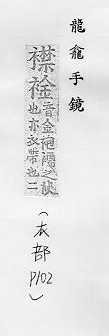 龍龕手鏡
襟
音金袍襦之袂
也亦衣帶也二
(衣部
P102)